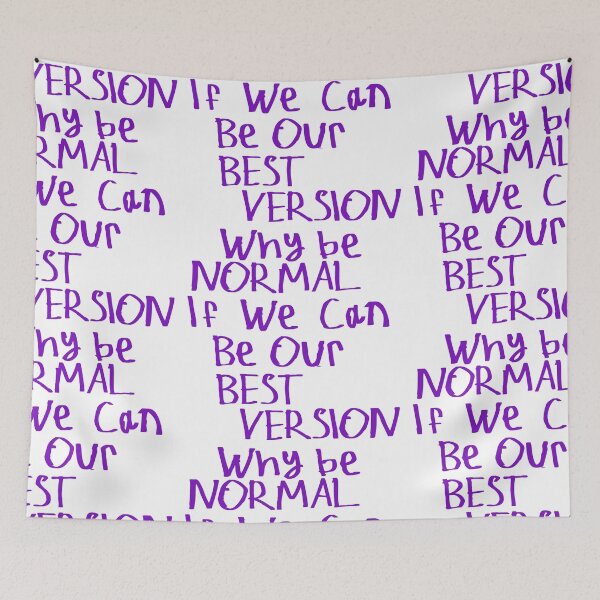 VERSION If We Can VERSION
Why be Be Our Why be
RMAL BEST NORMAL
We Can VERSION If We C
Our Why be Be Our
EST NORMAL BEST
VERSION If We Can VERSION
hy be Be Our Why be
RMAL BEST NORMAL
We Can VERSION If We C
Our Why be Be Our
EST NORMAL BEST
VERSION If We Can VERSION